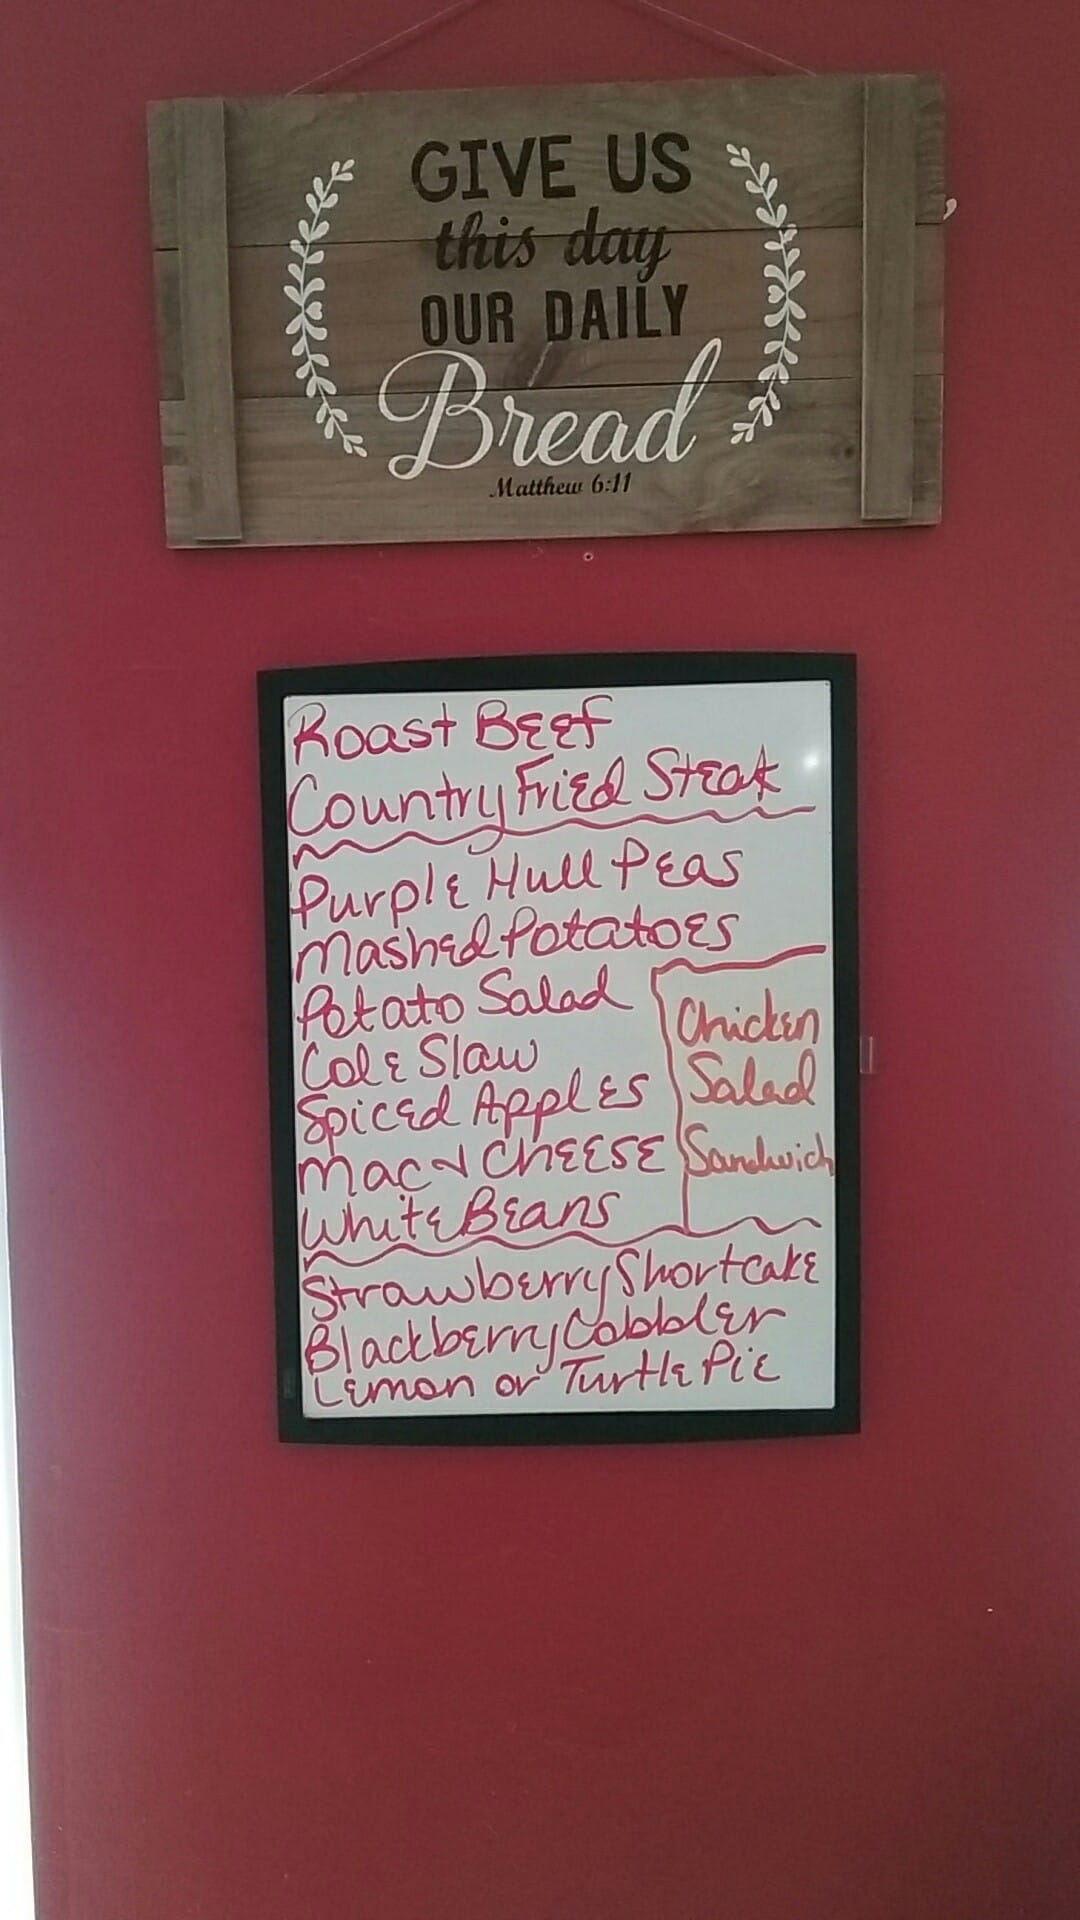 GIVE US
this day
OUR DAILY
Bread
Matthew 6:11
Roast Beef
Country Fried Steak
Purple Hull Peas
Mashed Potatoes
Potato Salad
Cole Slaw
Spiced Apples
Mac & Cheese
White Beans
Chicken
Salad
Sandwich
Strawberry Shortcake
Blackberry Cobbler
Lemon or Turtle Pie